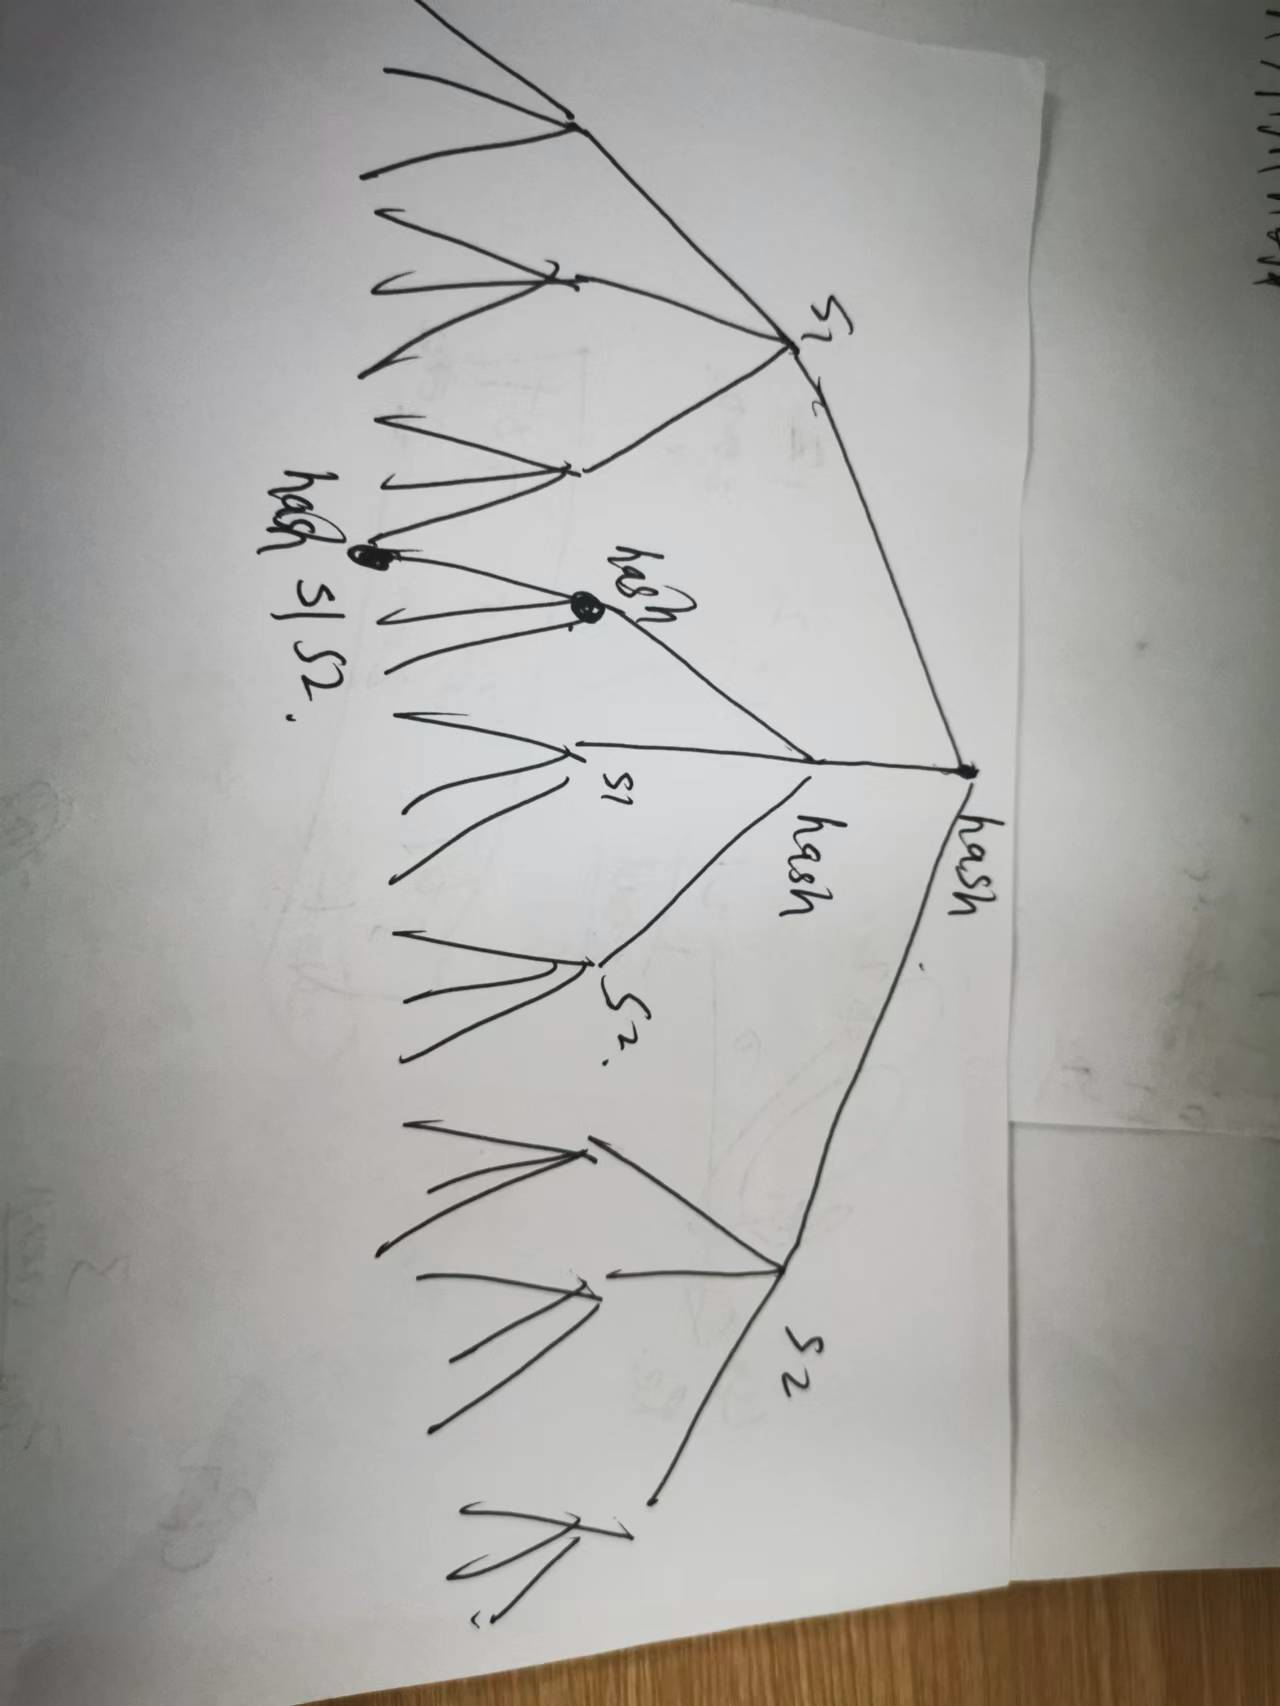 hash
S1 hash S2
hash S1 S2.
hash S1 S2.